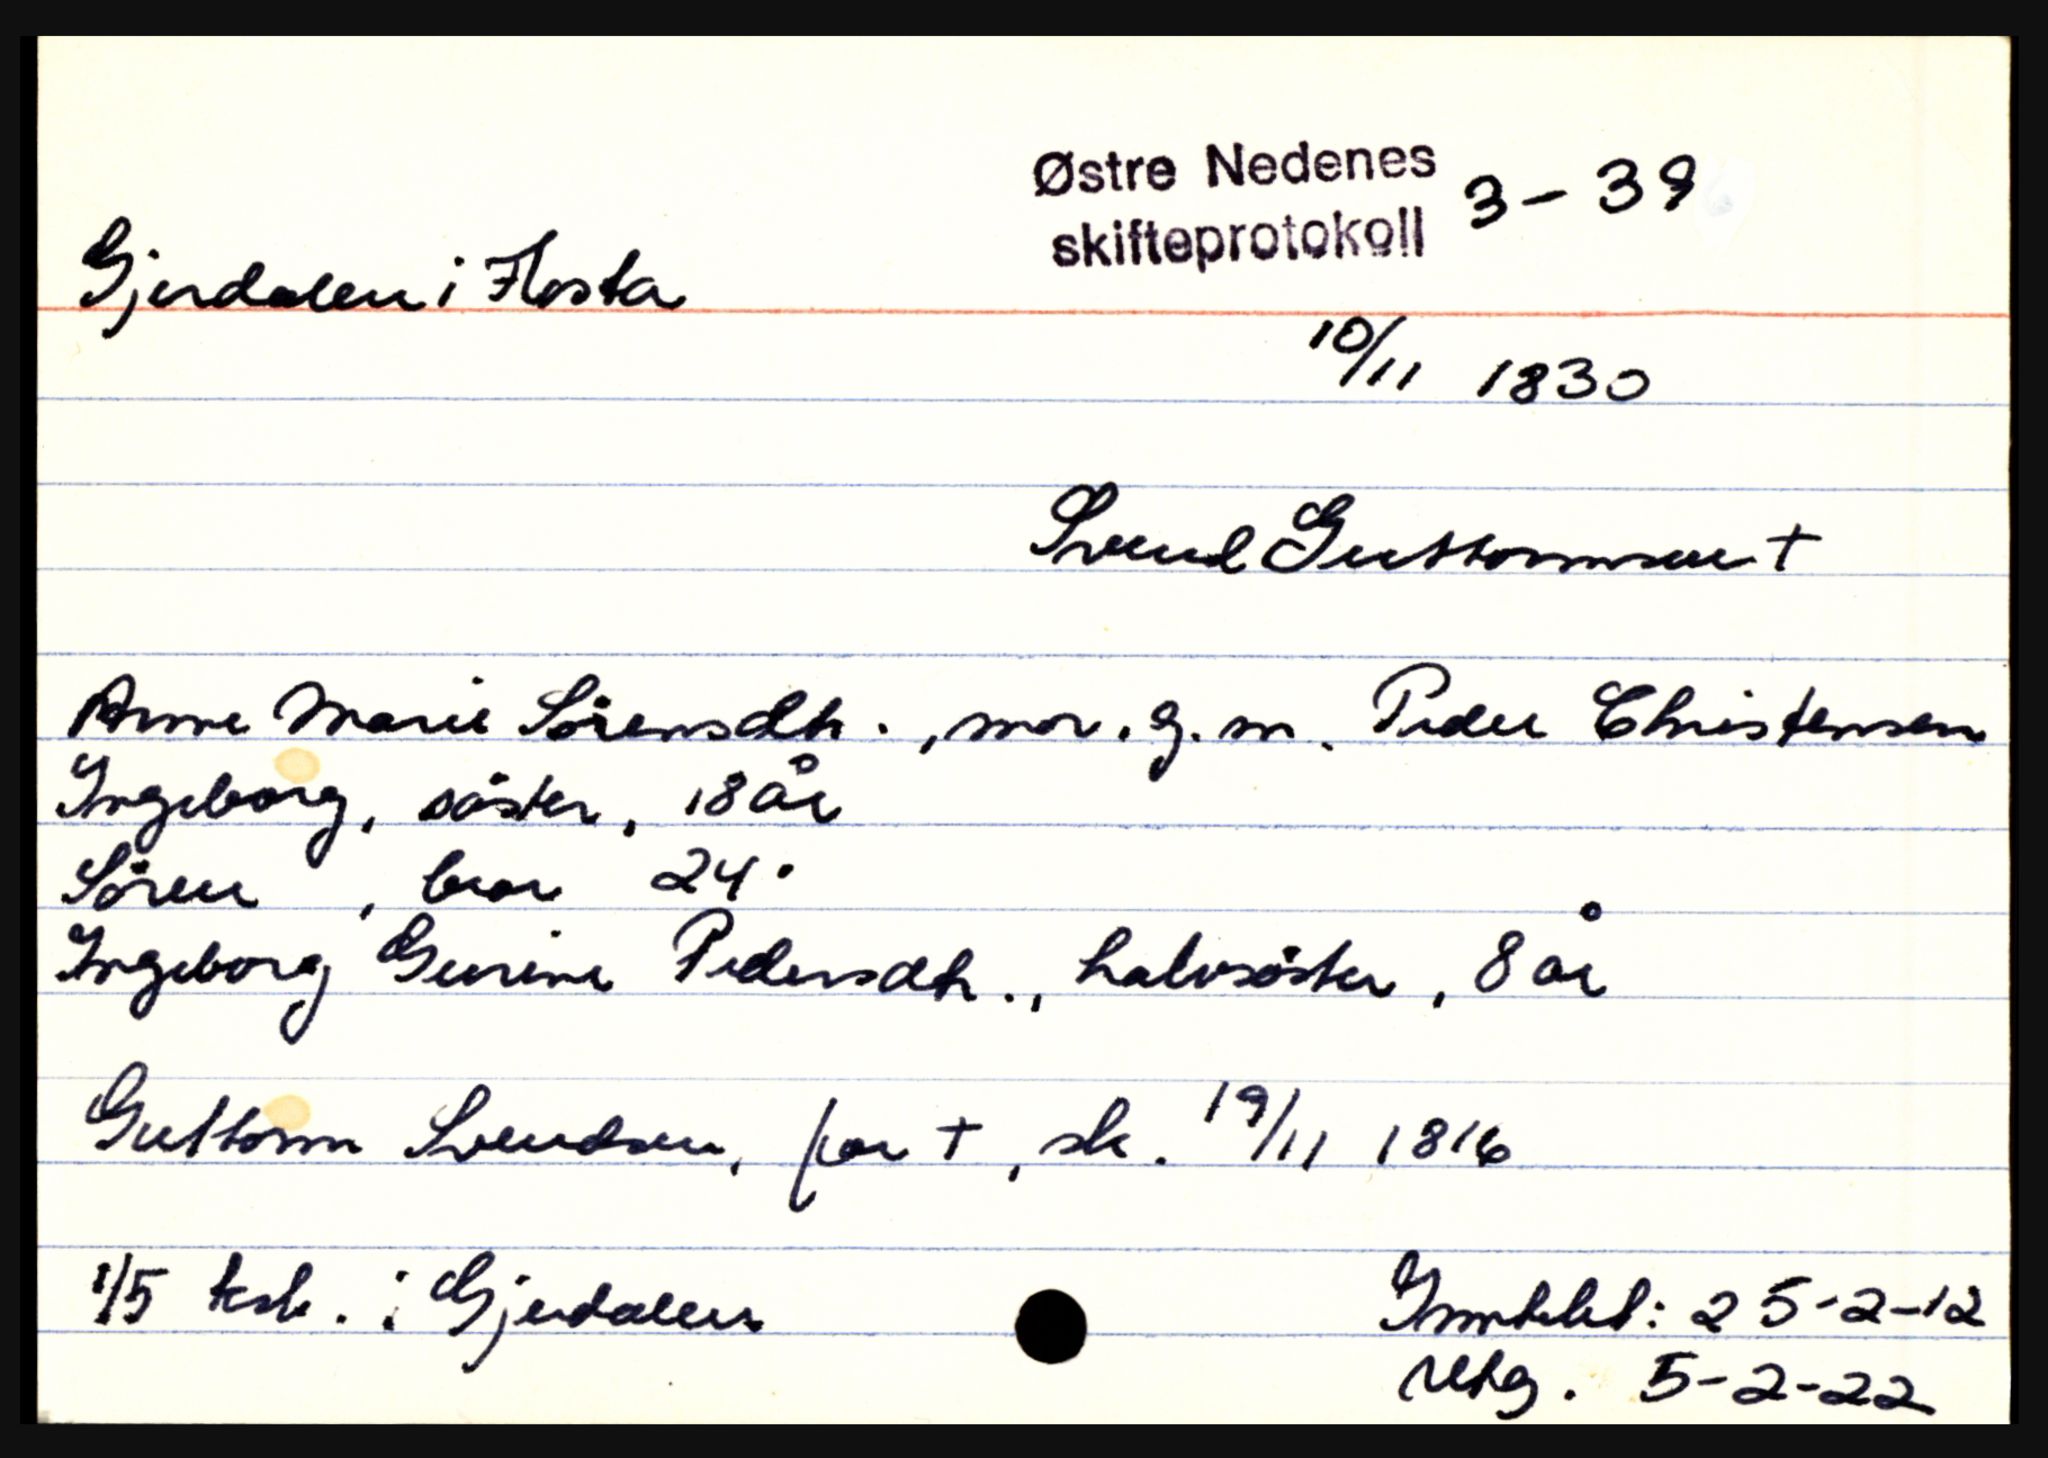 Østre Nedenes
skifteprotokoll 3-39
Gjerdalen i Flosta
10/11 1830
Svend Guttormsen +
Anne Marie Sörensdtr., mor. g. m. Peder Christensen
Ingeborg, söster, 18 år
Sören, bror 24"
Ingeborg Gurine Pedersdtr., halvsöster, 8 år
Guttorm Svendsen, far +, sk. 19/11 1816
1/5 ksk. i Gjerdalen
Inntekt: 25-2-12
Utg. 5-2-22